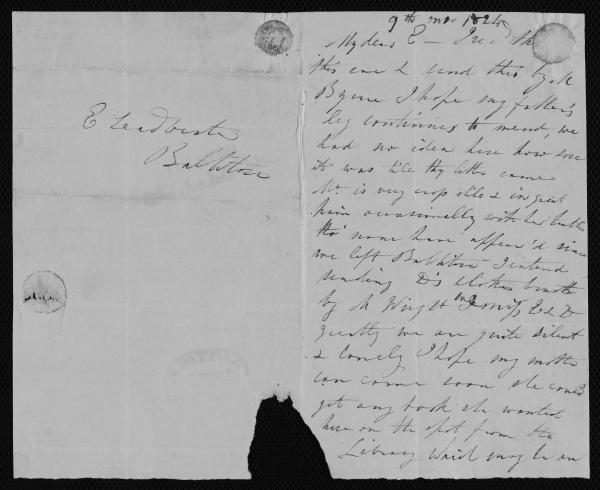 E Leadbeater
Ballitore
9th mo 1824
My dear E - I rec'd th
this eve & send this by M
Byrne I hope my father's
leg continues to mend, we
had no idea here how sore
it was till thy letter came
M. is very cross also & in great
pain occasionally with her teeth
tho' none have appear'd since
we left Ballitore I intend
sending D's clothes brush
by M Wright I miss E & D
greatly we are quite silent
& lonely I hope my mother
can come soon she could
get any book she wanted
here on the spot from the
Library which may be an